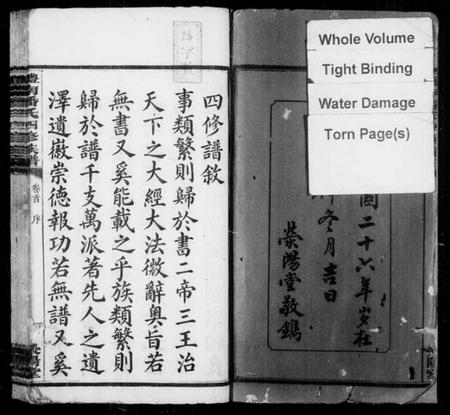 Whole Volume
Tight Binding
Water Damage
Torn Page(s)
國二十六年歲在
冬月吉日
滎陽堂敬鐫
四修譜敘
事類繁則歸於書二帝三王治
天下之大經大法微辭奧旨若
無書又奚能載之乎族類繁則
歸於譜千支萬派著先人之遺
澤遺徽崇德報功若無譜又奚
潘氏四修族譜
卷首 序